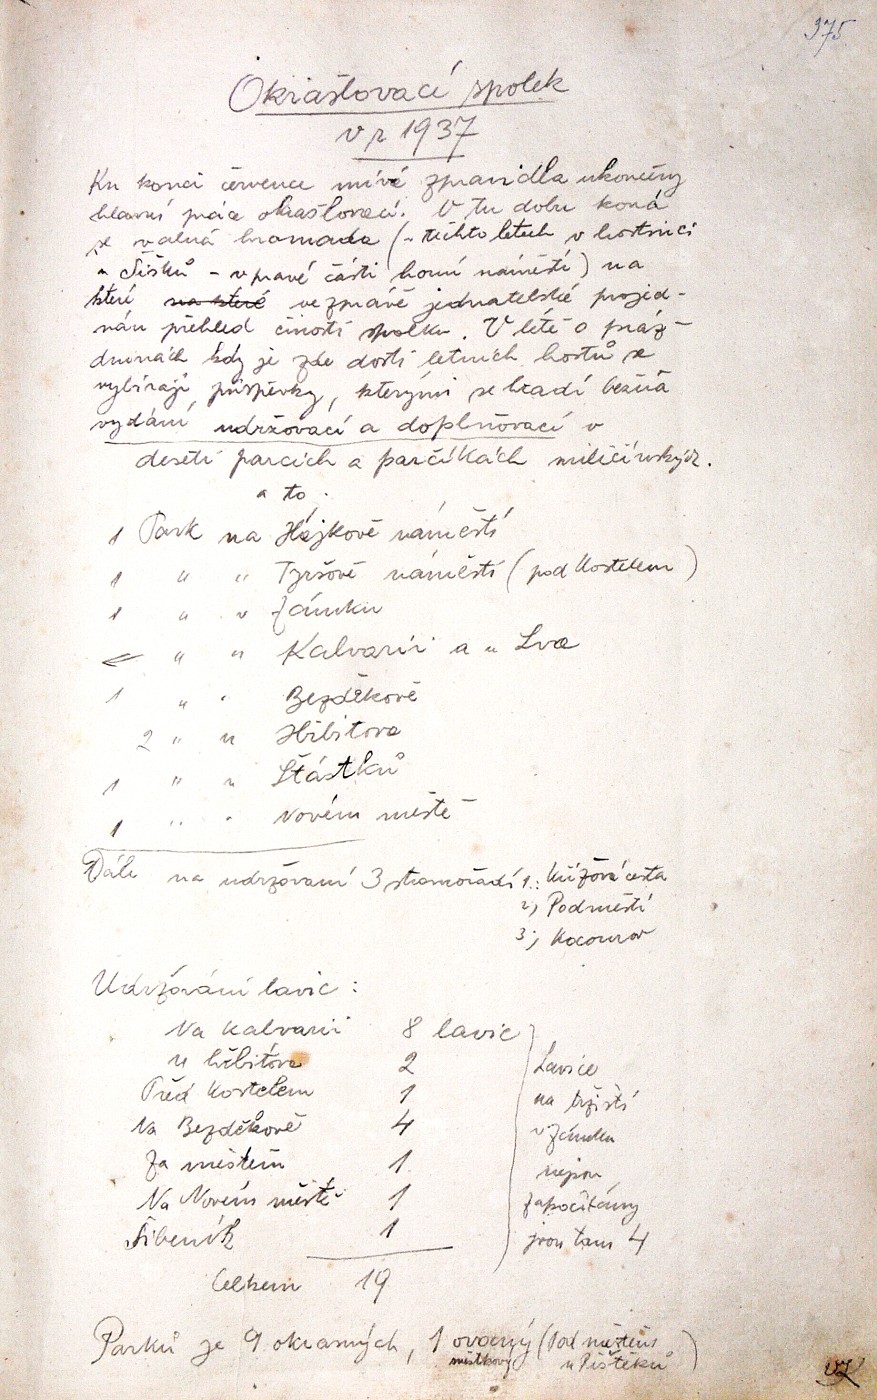 375
Okrašlovací spolek
v r 1937
Ku konci července mívá zpravidla ukončeny
hlavní práce okrašlovací. V tu dobu koná
se valná hromada (v těchto letech v hostinci
u Šišků - v pravé části horní náměstí) na
které na které ve zprávě jednatelské projed-
nán přehled činosti spolku. V létě o práz-
dninách kdy je zde dosti letních hostů se
vybírají příspěvky, kterými se hradí běžná
vydání udržovací a doplňovací v
deseti parcích a parčíkách miličínských.
a to.
1 Park na Hájkově náměstí
1 " " Tyršově náměstí (pod Kostelem)
1 " v Zámku
" " Kalvarii a u Lva
1 " " Bezděkově
2 " u Hřbitova
1 " u Šťástků
1 " " Novém městě
Dále na udržování 3 stromořadí 1.: Křížová cesta
2) Podměstí
3) Kocourov
Udržování lavic:
Na Kalvarii 8 lavic
u hřbitova 2
Před Kostelem 1
Na Bezděkově 4
Za městem 1
Na Novém městě 1
Šibeník 1
Celkem 19
Lavice
na tržišti
v Zámku
nejsou
započítány
jsou tam 4
Parků je 9 okrasných, 1 ovocný (pod městem
u Pištěků)